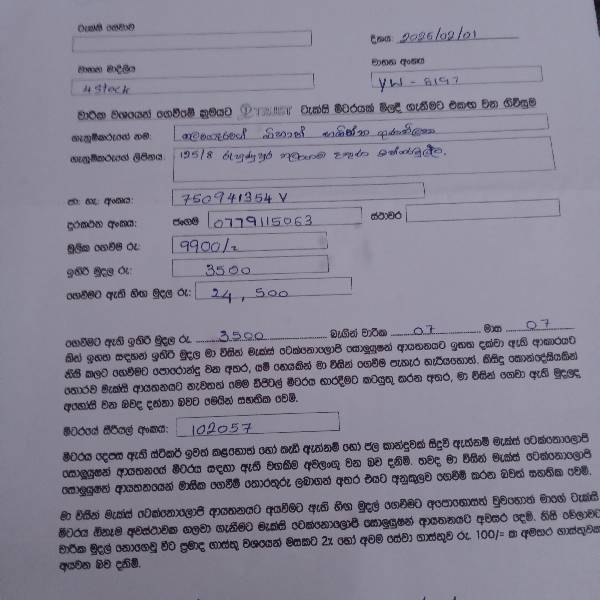 ටැක්සි සේවාව
දිනය: 2026/02/01
වාහන මාදිලිය
වාහන අංකය
4 Stock
YW - 8197
වාරික වශයෙන් ගෙවීමේ ක්‍රමයට TRUST ටැක්සි මීටරයක් මිලදී ගැනීමට එකඟ වන ගිවිසුම
ගැනුම්කරුගේ නම:
ගැනුම්කරුගේ ලිපිනය: 195/8
ජා. හැ. අංකය: 750941354 V
දුරකථන අංකය: ජංගම 0779115063 ස්ථාවර
මූලික ගෙවීම රු: 9900/=
ඉතිරි මුදල රු: 3500
ගෙවීමට ඇති හිඟ මුදල රු: 24,500
ගෙවීමට ඇති ඉතිරි මුදල රු. 3500 බැගින් වාරික 07 මාස 07
කින් ඉහත සඳහන් ඉතිරි මුදල මා විසින් මැක්ස් ටෙක්නොලොජි සොලූෂන් ආයතනයට ඉහත දක්වා ඇති ආකාරයට
නිසි කලට ගෙවීමට පොරොන්දු වන අතර, යම් හෙයකින් මා විසින් ගෙවීම පැහැර හැරියහොත්, කිසිදු කොන්දේසියකින්
තොරව මැක්සි ආයතනයට නැවතත් මෙම ඩිජිටල් මීටරය භාරදීමට කටයුතු කරන අතර, මා විසින් ගෙවා ඇති මුදලද
අහෝසි වන බවද දන්නා බවට මෙයින් සහතික වෙමි.
මීටරයේ සීරියල් අංකය: 102057
මීටරය දෙපස ඇති ස්ටිකර් ඉවත් කළහොත් හෝ කැඩී ඇත්නම් හෝ ජල කාන්දුවක් සිදුවී ඇත්නම් මැක්ස් ටෙක්නොලොජි
සොලූෂන් ආයතනයේ මීටරය සඳහා ඇති වගකීම අවලංගු වන බව දනිමි. තවද මා විසින් මැක්ස් ටෙක්නොලොජි
සොලූෂන් ආයතනයෙන් මාසික ගෙවීම් තොරතුරු ලබාගත් අතර එයට අනුකූලව ගෙවීම් කරන බවත් සහතික වෙමි.
මා විසින් මැක්ස් ටෙක්නොලොජි ආයතනයට අයවීමට ඇති හිඟ මුදල් ගෙවීමට අපොහොසත් වුවහොත් මාගේ ටැක්සි
මීටරය ඕනෑම අවස්ථාවක ගලවා ගැනීමට මැක්සි ටෙක්නොලොජි සොලූෂන් ආයතනයට අවසර දෙමි. නිසි වේලාවට
වාරික මුදල් නොගෙවූ විට ප්‍රමාද ගාස්තු වශයෙන් මසකට 2% හෝ අවම සේවා ගාස්තුව රු. 100/= ක අමතර ගාස්තුවක්
අයවන බව දනිමි.